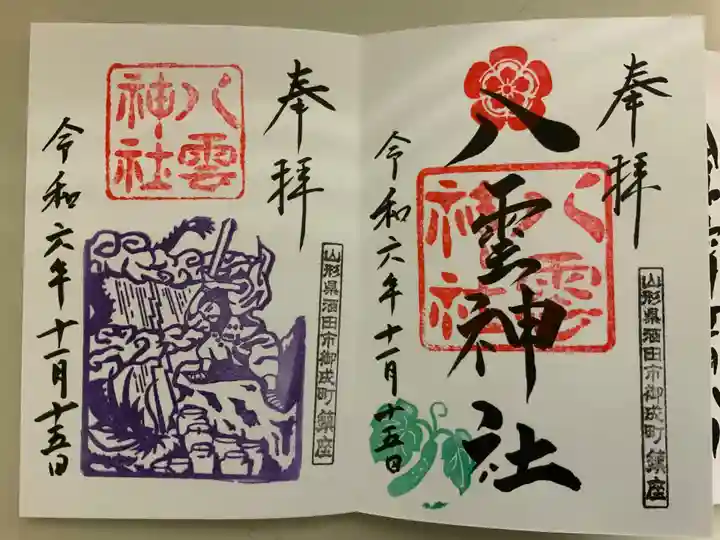 奉拝
八雲神社
八雲
神社
山形県酒田市御成町鎮座
令和六年十一月十五日
奉拝
八雲
神社
山形県酒田市御成町鎮座
令和六年十一月十五日